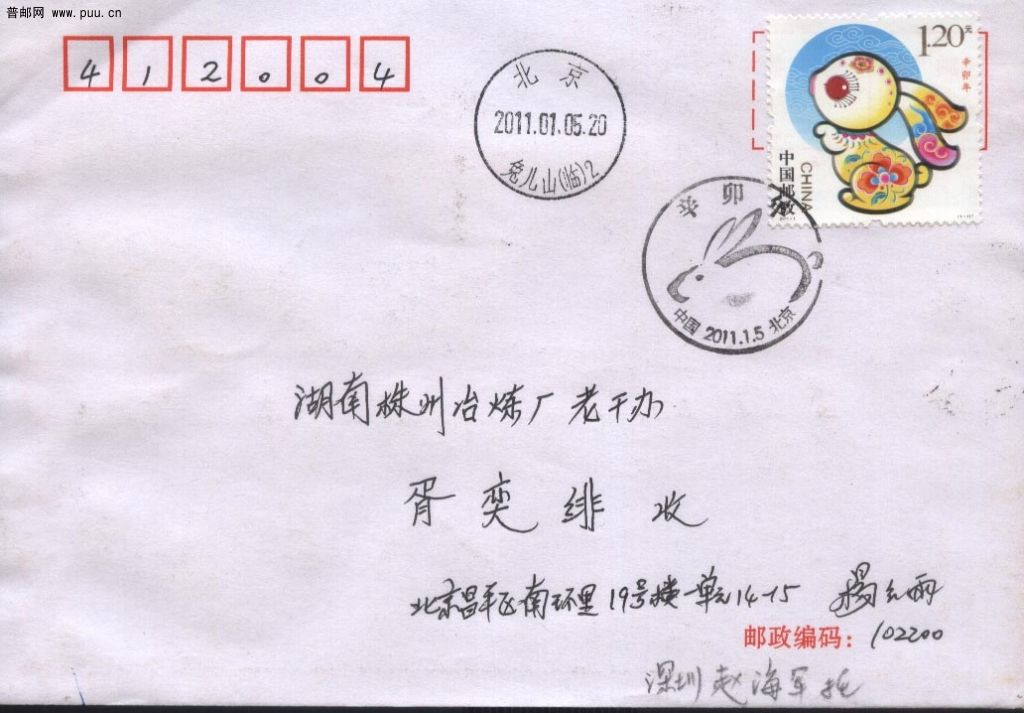 普邮网 www.puu.cn
412004
北京
2011.01.05.20
兔儿山(临)2
1.20元
辛卯年
中国邮政
CHINA
卯
中国 2011.1.5 北京
湖南株州冶炼厂老干办
胥奕绯 收
北京昌平区南环里19号楼一单元14-15
邮政编码：102200
深圳赵海军托